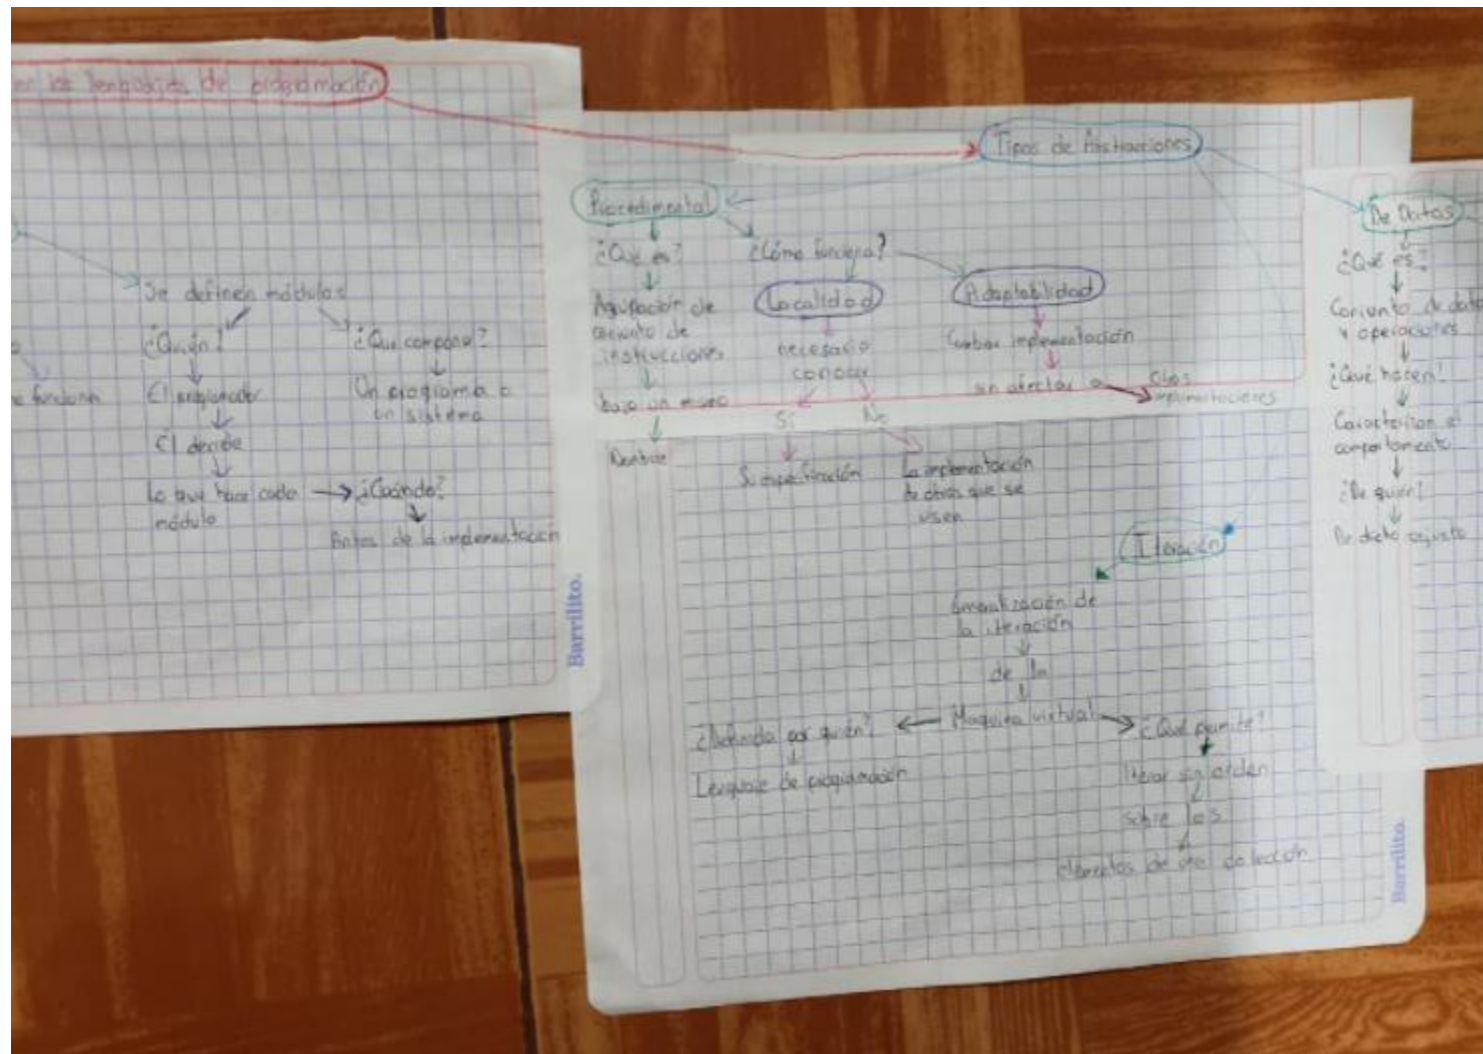 en los lenguajes de programación
Se definen módulos
¿Quién?
El programador
Él decide
Lo que hace cada
módulo
¿Cuándo?
Antes de la implementación
¿Que compone?
Un programa o
un sistema
funciona
Barrilito.
Tipos de Abstracciones
Procedimental
¿Qué es?
Agrupación de
conjunto de
instrucciones
bajo un mismo
Nombre
¿Cómo funciona?
Localidad
necesario
conocer
Sí
Su especificación
No
La implementación
de otras que se
usen
Adaptabilidad
Cambiar implementación
sin afectar a
otras
implementaciones
Iteración
Generalización de
la iteración
de la
Maquina virtual
¿Definida por quién?
Lenguaje de programación
¿Qué permite?
Iterar sin orden
sobre los
elementos de una colección
Barrilito.
De Datos
¿Qué es?
Conjunto de
y operaciones
¿Qué hacen?
Caracterizan el
comportamiento
¿De quién?
De dicho conjunto